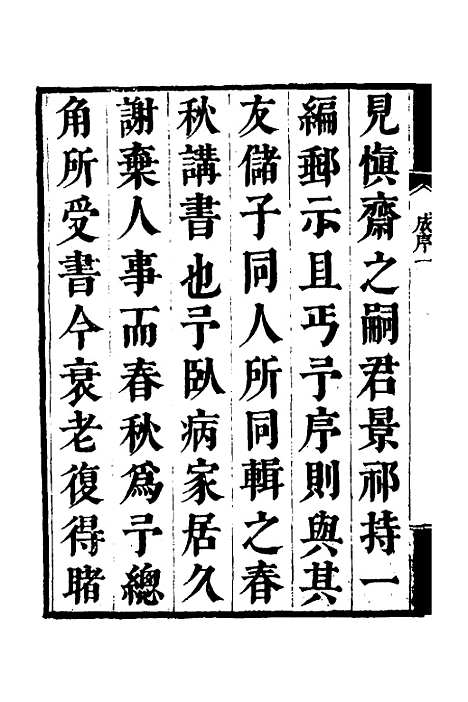 見愼齋之嗣君景祁持一
編郵示且丐予序則與其
友儲子同人所同輯之春
秋講書也予臥病家居久
謝棄人事而春秋爲予總
角所受書今衰老復得睹
成序一